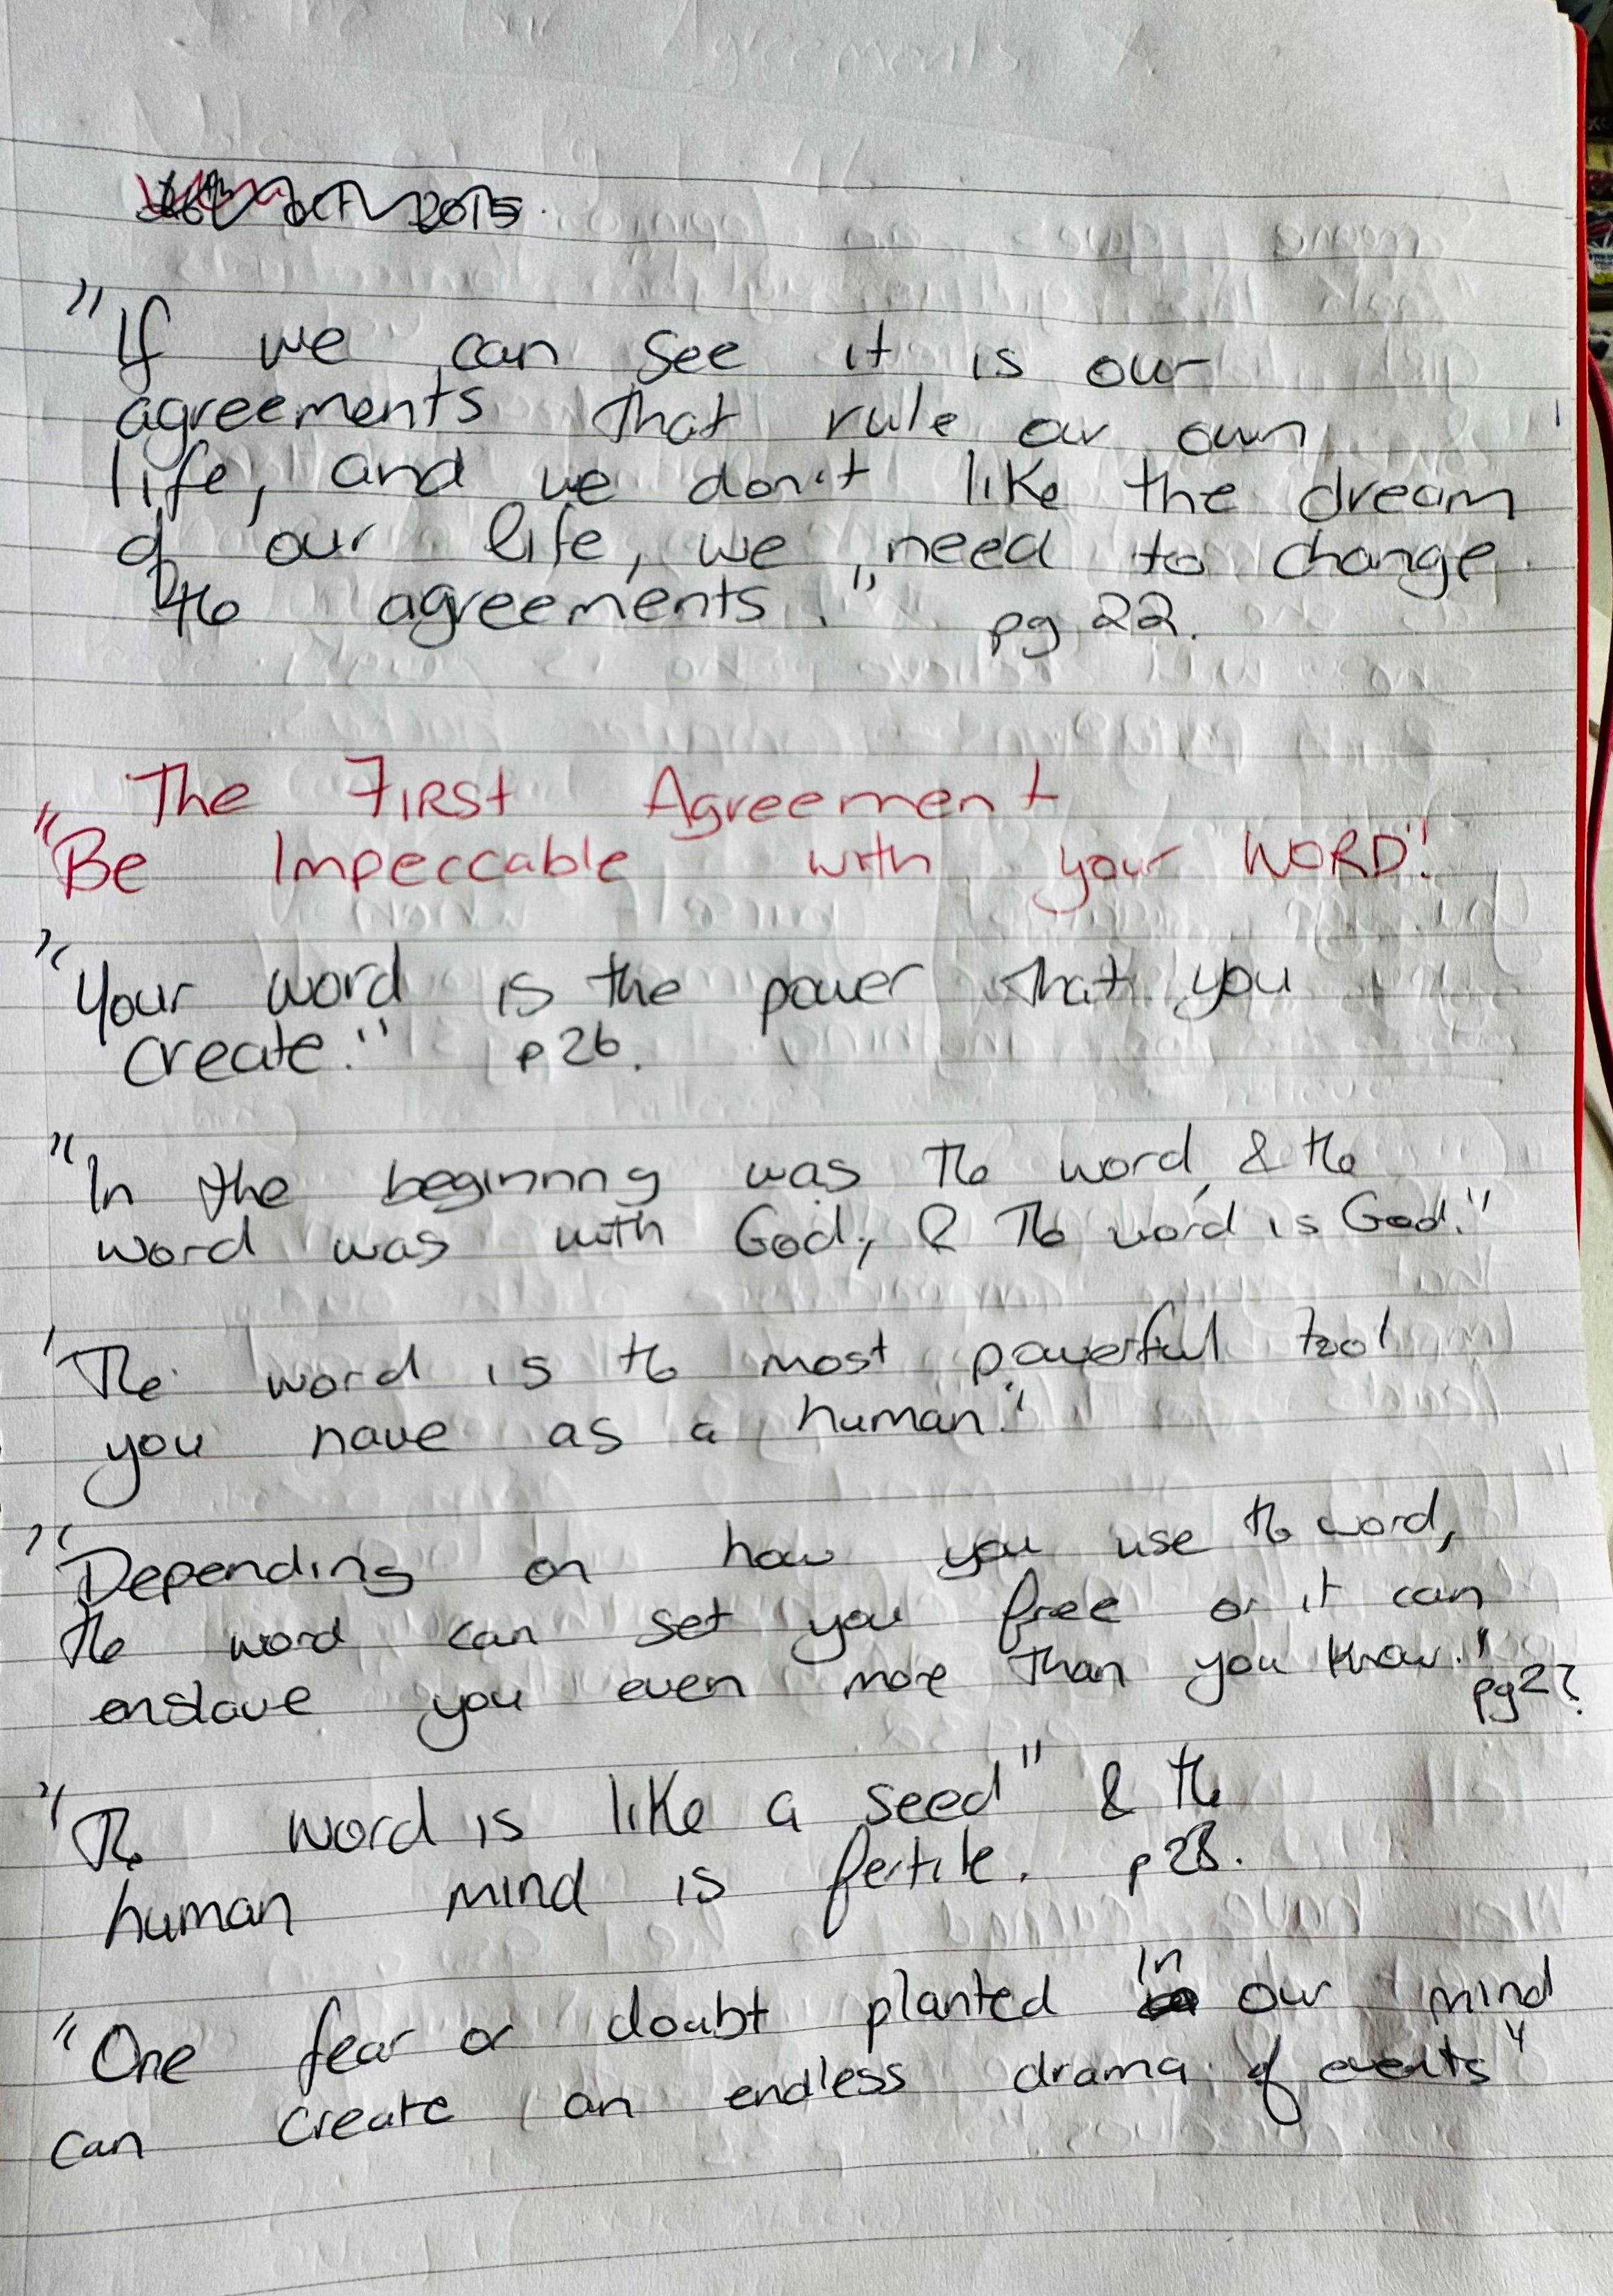 26th Oct 2015.
"If we can see it is our
agreements that rule our own
life, and we don't like the dream
of our life, we need to change
the agreements." pg 22.
The First Agreement
"Be Impeccable with your WORD"!
"Your word is the power that you
create." p 26.
"In the beginning was the word, & the
word was with God, & the word is God."
'The word is the most powerful tool
you have as a human.'
"Depending on how you use the word,
the word can set you free or it can
enslave you even more than you know."
pg 27.
"The word is like a seed" & the
human mind is fertile. p 28.
"One fear or doubt planted in our mind
can create an endless drama of events"